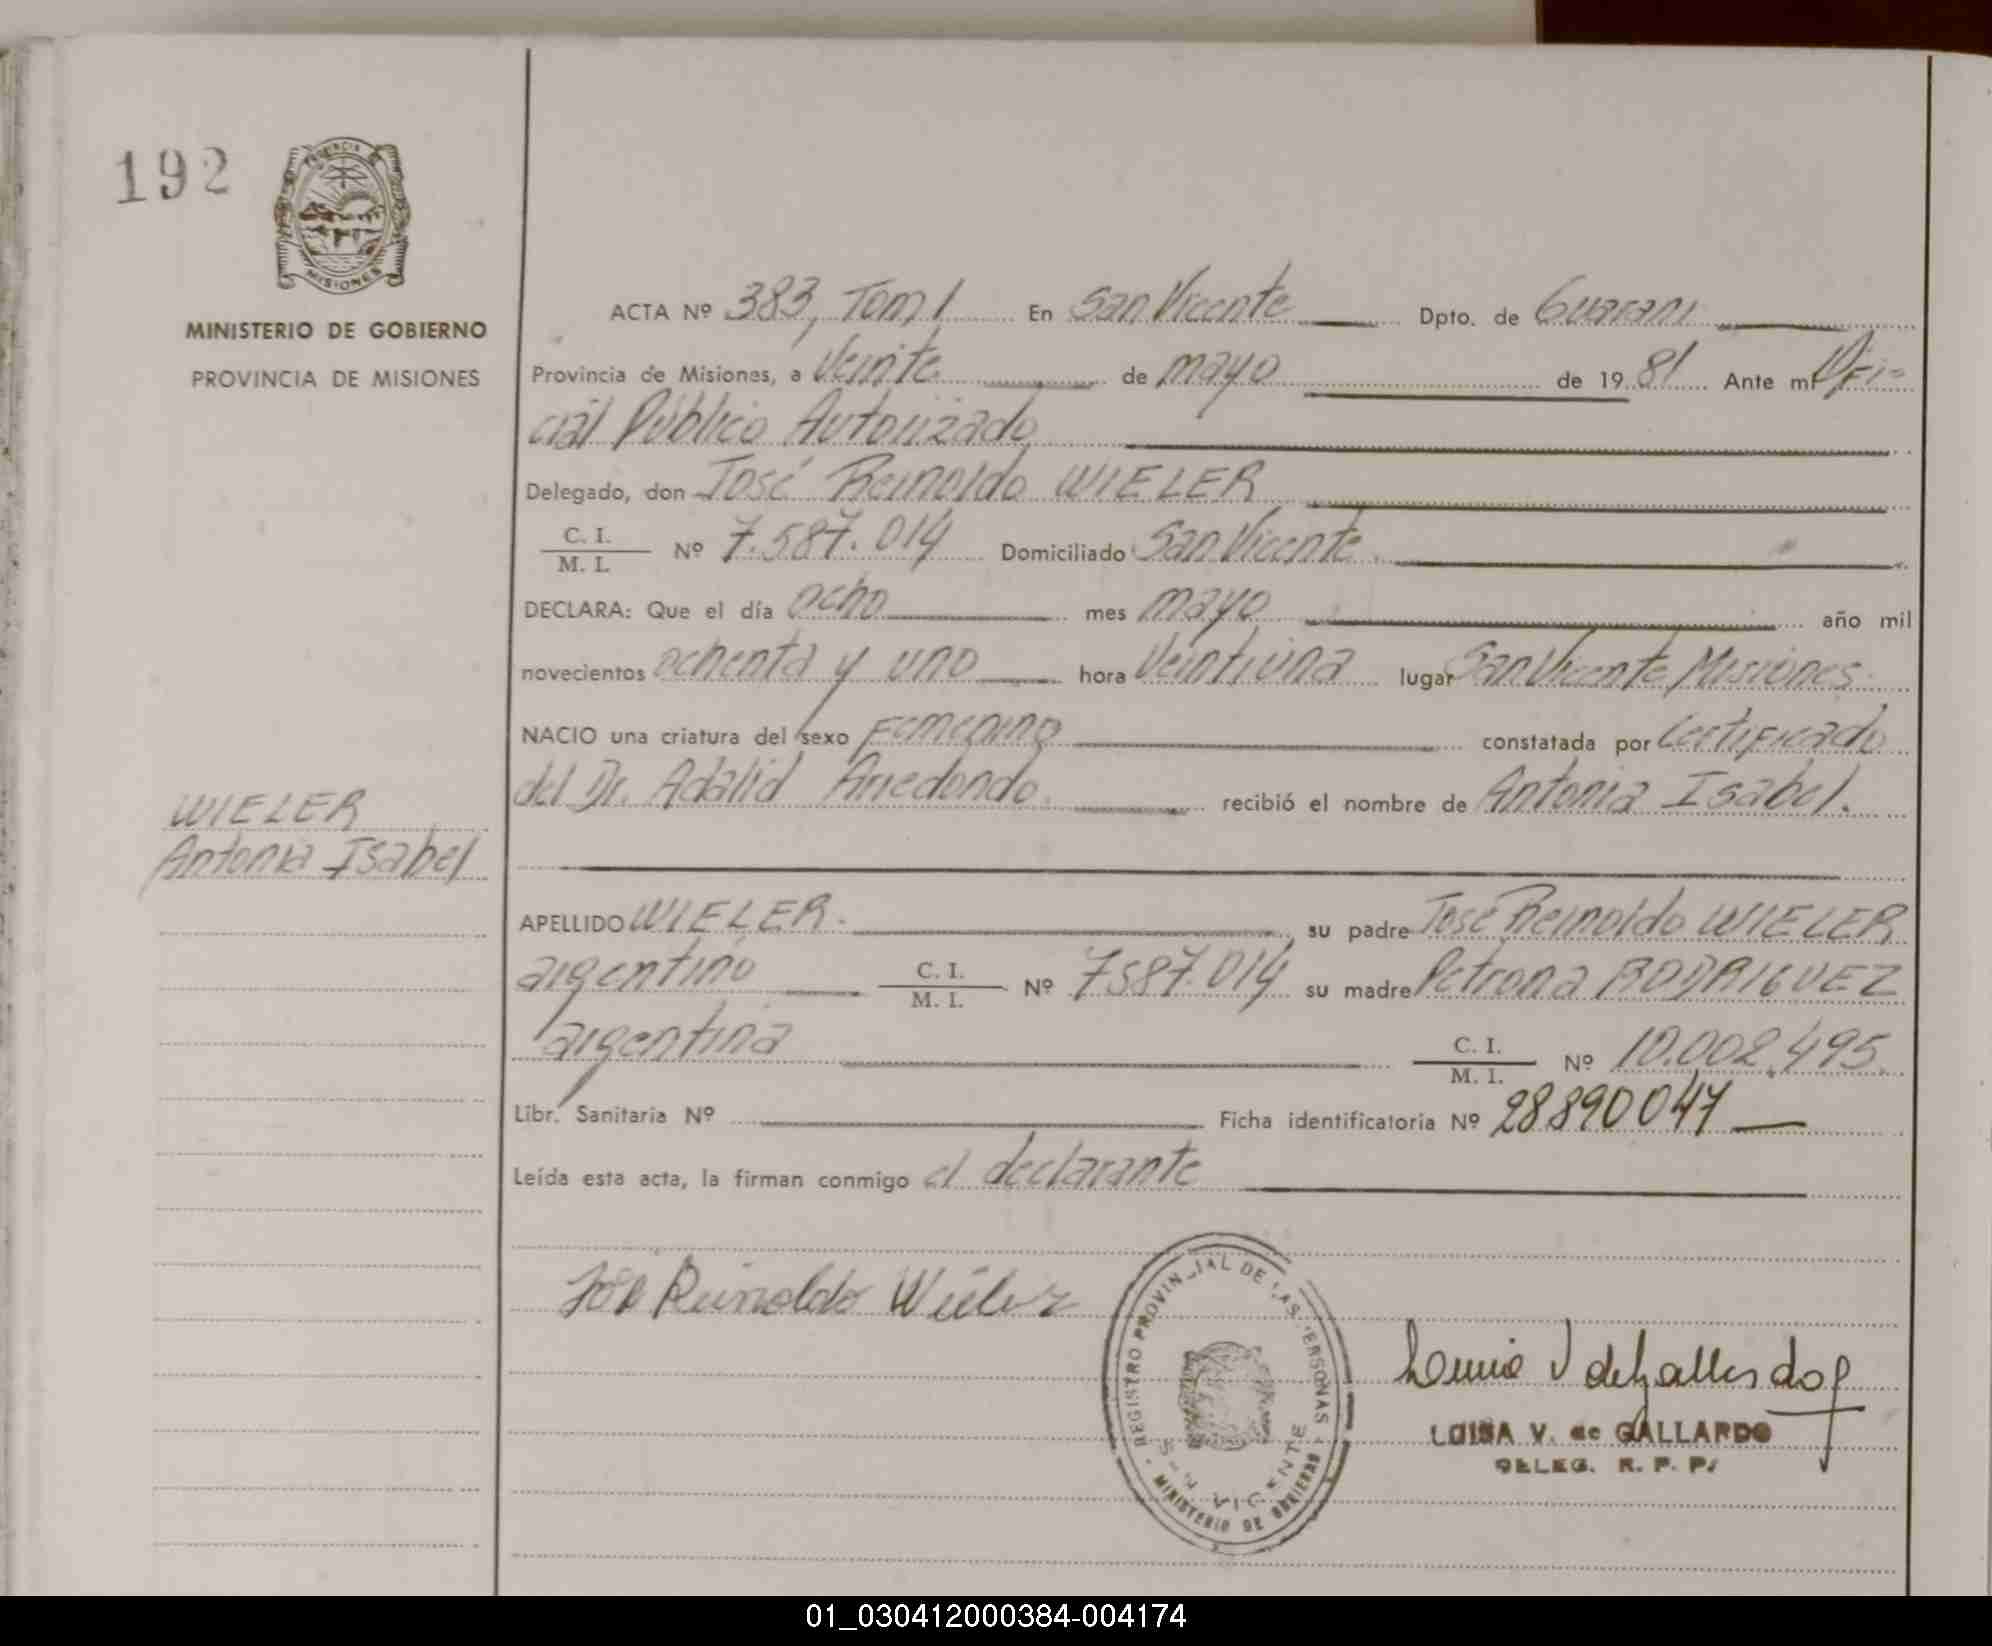 192
PROVINCIA DE
MISIONES
MINISTERIO DE GOBIERNO
PROVINCIA DE MISIONES
ACTA Nº 383, Tom I En San Vicente Dpto. de Guarani
Provincia de Misiones, a Veinte de mayo de 19 81 Ante mí Ofi-
cial Público Autorizado
Delegado, don José Reinoldo WIELER
C. I.
M. I. Nº 7.587.014 Domiciliado San Vicente
DECLARA: Que el día ocho mes mayo año mil
novecientos ochenta y uno hora Veintiuna lugar San Vicente Misiones.
NACIO una criatura del sexo Femenino constatada por Certificado
del Dr. Adalid Arredondo. recibió el nombre de Antonia Isabel.
WIELER
Antonia Isabel
APELLIDO WIELER. su padre José Reinoldo WIELER
argentino C. I.
M. I. Nº 7587.014 su madre Petrona RODRIGUEZ
argentina C. I.
M. I. Nº 10.002.495.
Libr. Sanitaria Nº Ficha identificatoria Nº 28890047
Leída esta acta, la firman conmigo el declarante
José Reinoldo Wieler
REGISTRO PROVINCIAL DE LAS PERSONAS
SAN VICENTE
MINISTERIO DE GOBIERNO
Luisa V de Gallardo
LUISA V. de GALLARDO
DELEG. R. P. P.
01_030412000384-004174